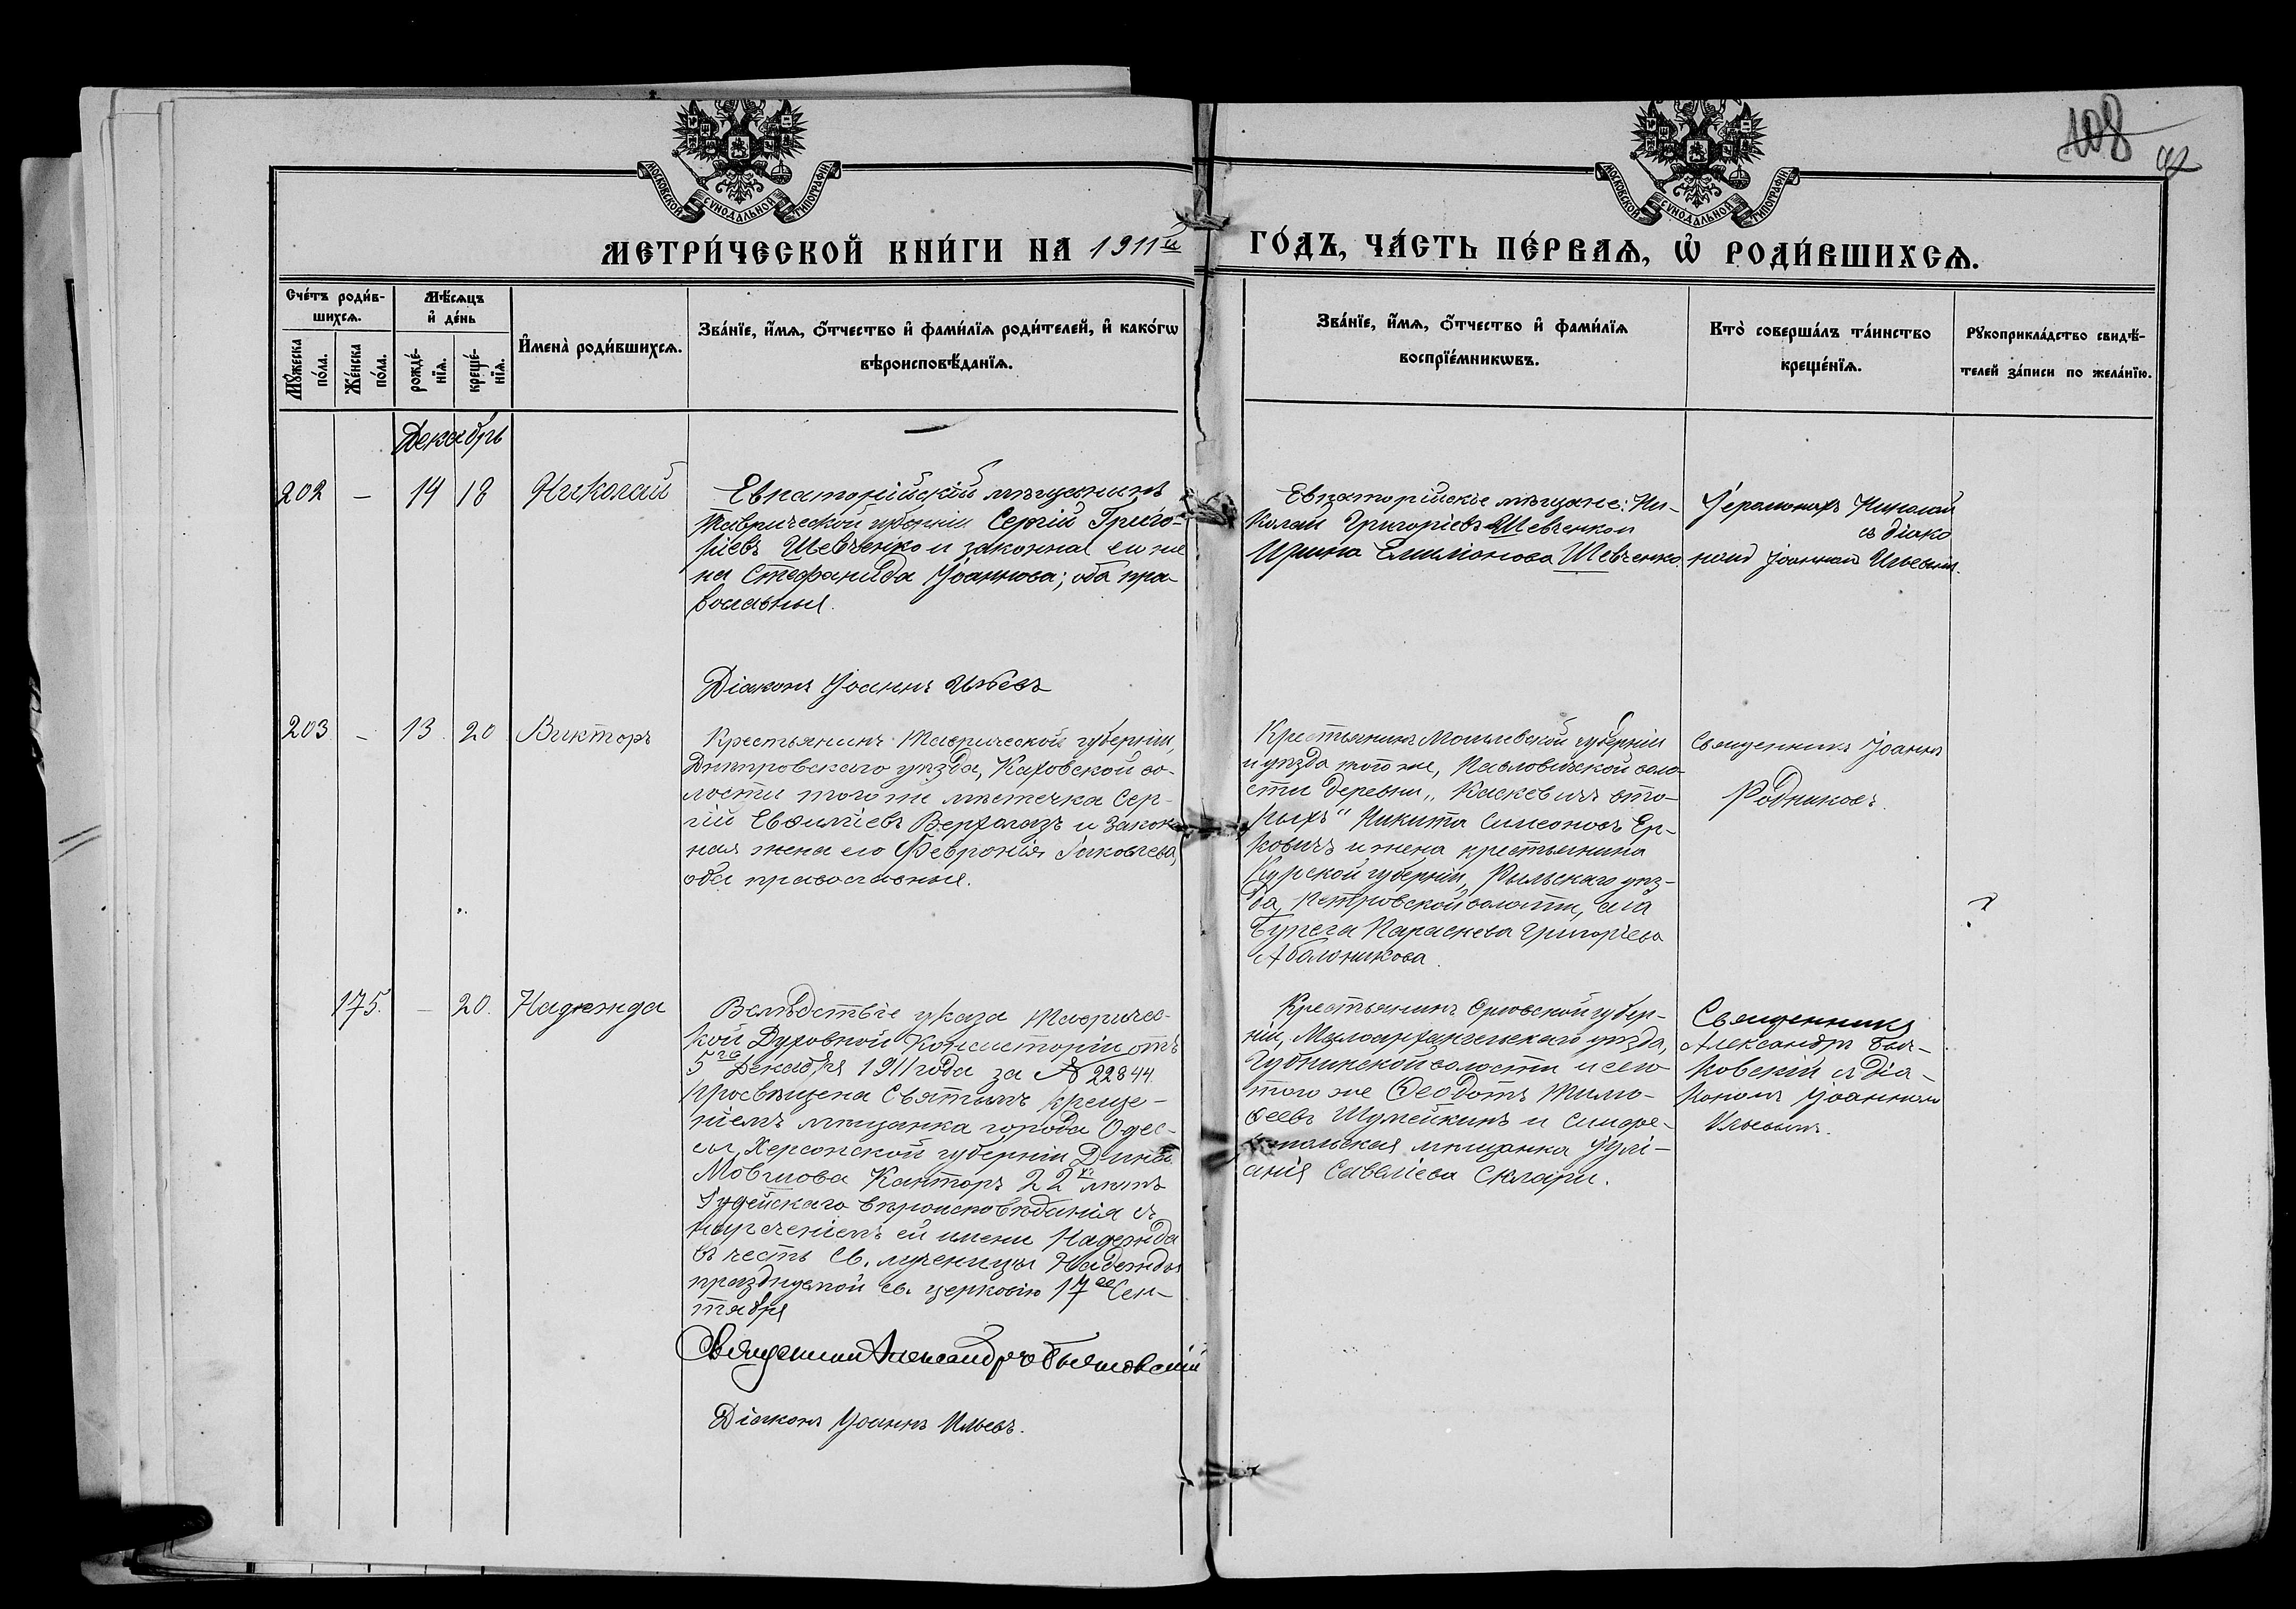 108
92
МОСКОВСКОЙ СУНОДАЛЬНОЙ ТИПОГРАФІИ
МОСКОВСКОЙ СУНОДАЛЬНОЙ ТИПОГРАФІИ
МЕТРИ́ЧЕСКОЙ КНИ́ГИ НА 1911й ГО́ДЪ, ЧА́СТЬ ПЕ́РВАѦ, Ѡ҆ РОДИ́ВШИХСѦ.
Сче́тъ роди́в-
шихсѧ.
Мꙋ́жеска по́ла.
Же́нска по́ла.
Мѣ́сѧцъ
и҆ де́нь
рожде́-
нїѧ.
креще́-
нїѧ.
И҆мена̀ роди́вшихсѧ.
Зва́нїе, и҆́мѧ, ѻ҆́тчество и҆ фами́лїѧ роди́телей, и҆ како́гѡ
вѣроисповѣ́данїѧ.
Зва́нїе, и҆́мѧ, ѻ҆́тчество и҆ фами́лїѧ
воспрїе́мникѡвъ.
Кто̀ соверша́лъ та́инство
креще́нїѧ.
Рꙋкоприкла́дство свидѣ́-
телей за́писи по жела́нїю.
Декабрь
202 — 14 18 Николай
Евпаторійскій мѣщанинъ
Таврической губерніи Сергій Григо-
ріевъ Шевченко и законная его же-
на Стефанида Іоаннова; оба пра-
вославныя.
Діаконъ Іоаннъ Ильевъ
Евпаторійскіе мѣщане: Ни-
колай Григоріевъ Шевченко и
Ирина Емиліонова Шевченко.
Іеромонахъ Николай
съ діако
номъ Іоанномъ Ильевымъ.
203 — 13 20 Викторъ
Крестьянинъ Таврической губерніи,
Днѣпровскаго уѣзда, Каховской во-
лости того же мѣстечка Сер-
гій Евфиміевъ Верхолазъ и закон-
ная жена его Февронія Іаковлева,
оба православные.
Крестьянинъ Могилевской губерніи
и уѣзда того же, Павловичской воло-
сти деревни "
рыхъ" Никита Симеоновъ Ер-
ковичъ и жена крестьянина
Курской губерніи, Рыльскаго уѣз-
да, Петровской волости, села
Параскева Григорьева
Священникъ Іоаннъ
Родниковъ.
?
175. — 20. Надежда
Вслѣдствіе указа Тавричес-
кой Духовной Консисторіи отъ
5го Декабря 1911 года за № 22844
просвѣщена Святымъ креще-
ніемъ мѣщанка города Одес-
сы, Херсонской губерніи Дина
Мовшова Канторъ 22х лѣтъ
Іудейскаго вѣроисповѣданія съ
нареченіемъ ей имени Надежда
въ честь Св. мученицы Надежды
празднуемой св. церковію 17го Сен-
тября
Священникъ Александръ
Діаконъ Іоаннъ Ильевъ.
Крестьянинъ Орловской губер-
ніи, Малоархангельскаго уѣзда,
Губкинской волости и села
того же Ѳеодотъ Тимо-
феевъ Шумейкинъ и Симфе-
ропольская мѣщанка Іулі-
анія Савеліева Скляри.
Священникъ
Александръ
съ Діа-
кономъ Іоанномъ
Ильевымъ.